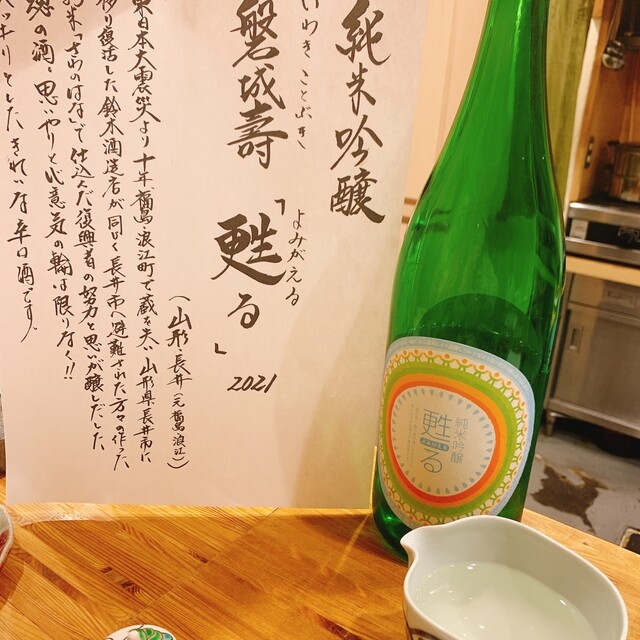 純米吟醸
いわき ことぶき
磐城壽
よみがえる
「甦る」
2021
(山形・長井(元福島浪江))
東日本大震災より十年、福島浪江町で蔵を失い山形県長井市に
移り復活した鈴木酒造店が同じく長井市へ避難された方々の作った
米「さわのはな」で仕込んだ復興者の努力と思いが醸しだした
の酒。思いやりと心意気の輪は限りなく!!
スッキリとしたきれいな辛口酒です。
純米吟醸
甦る
よみがえる